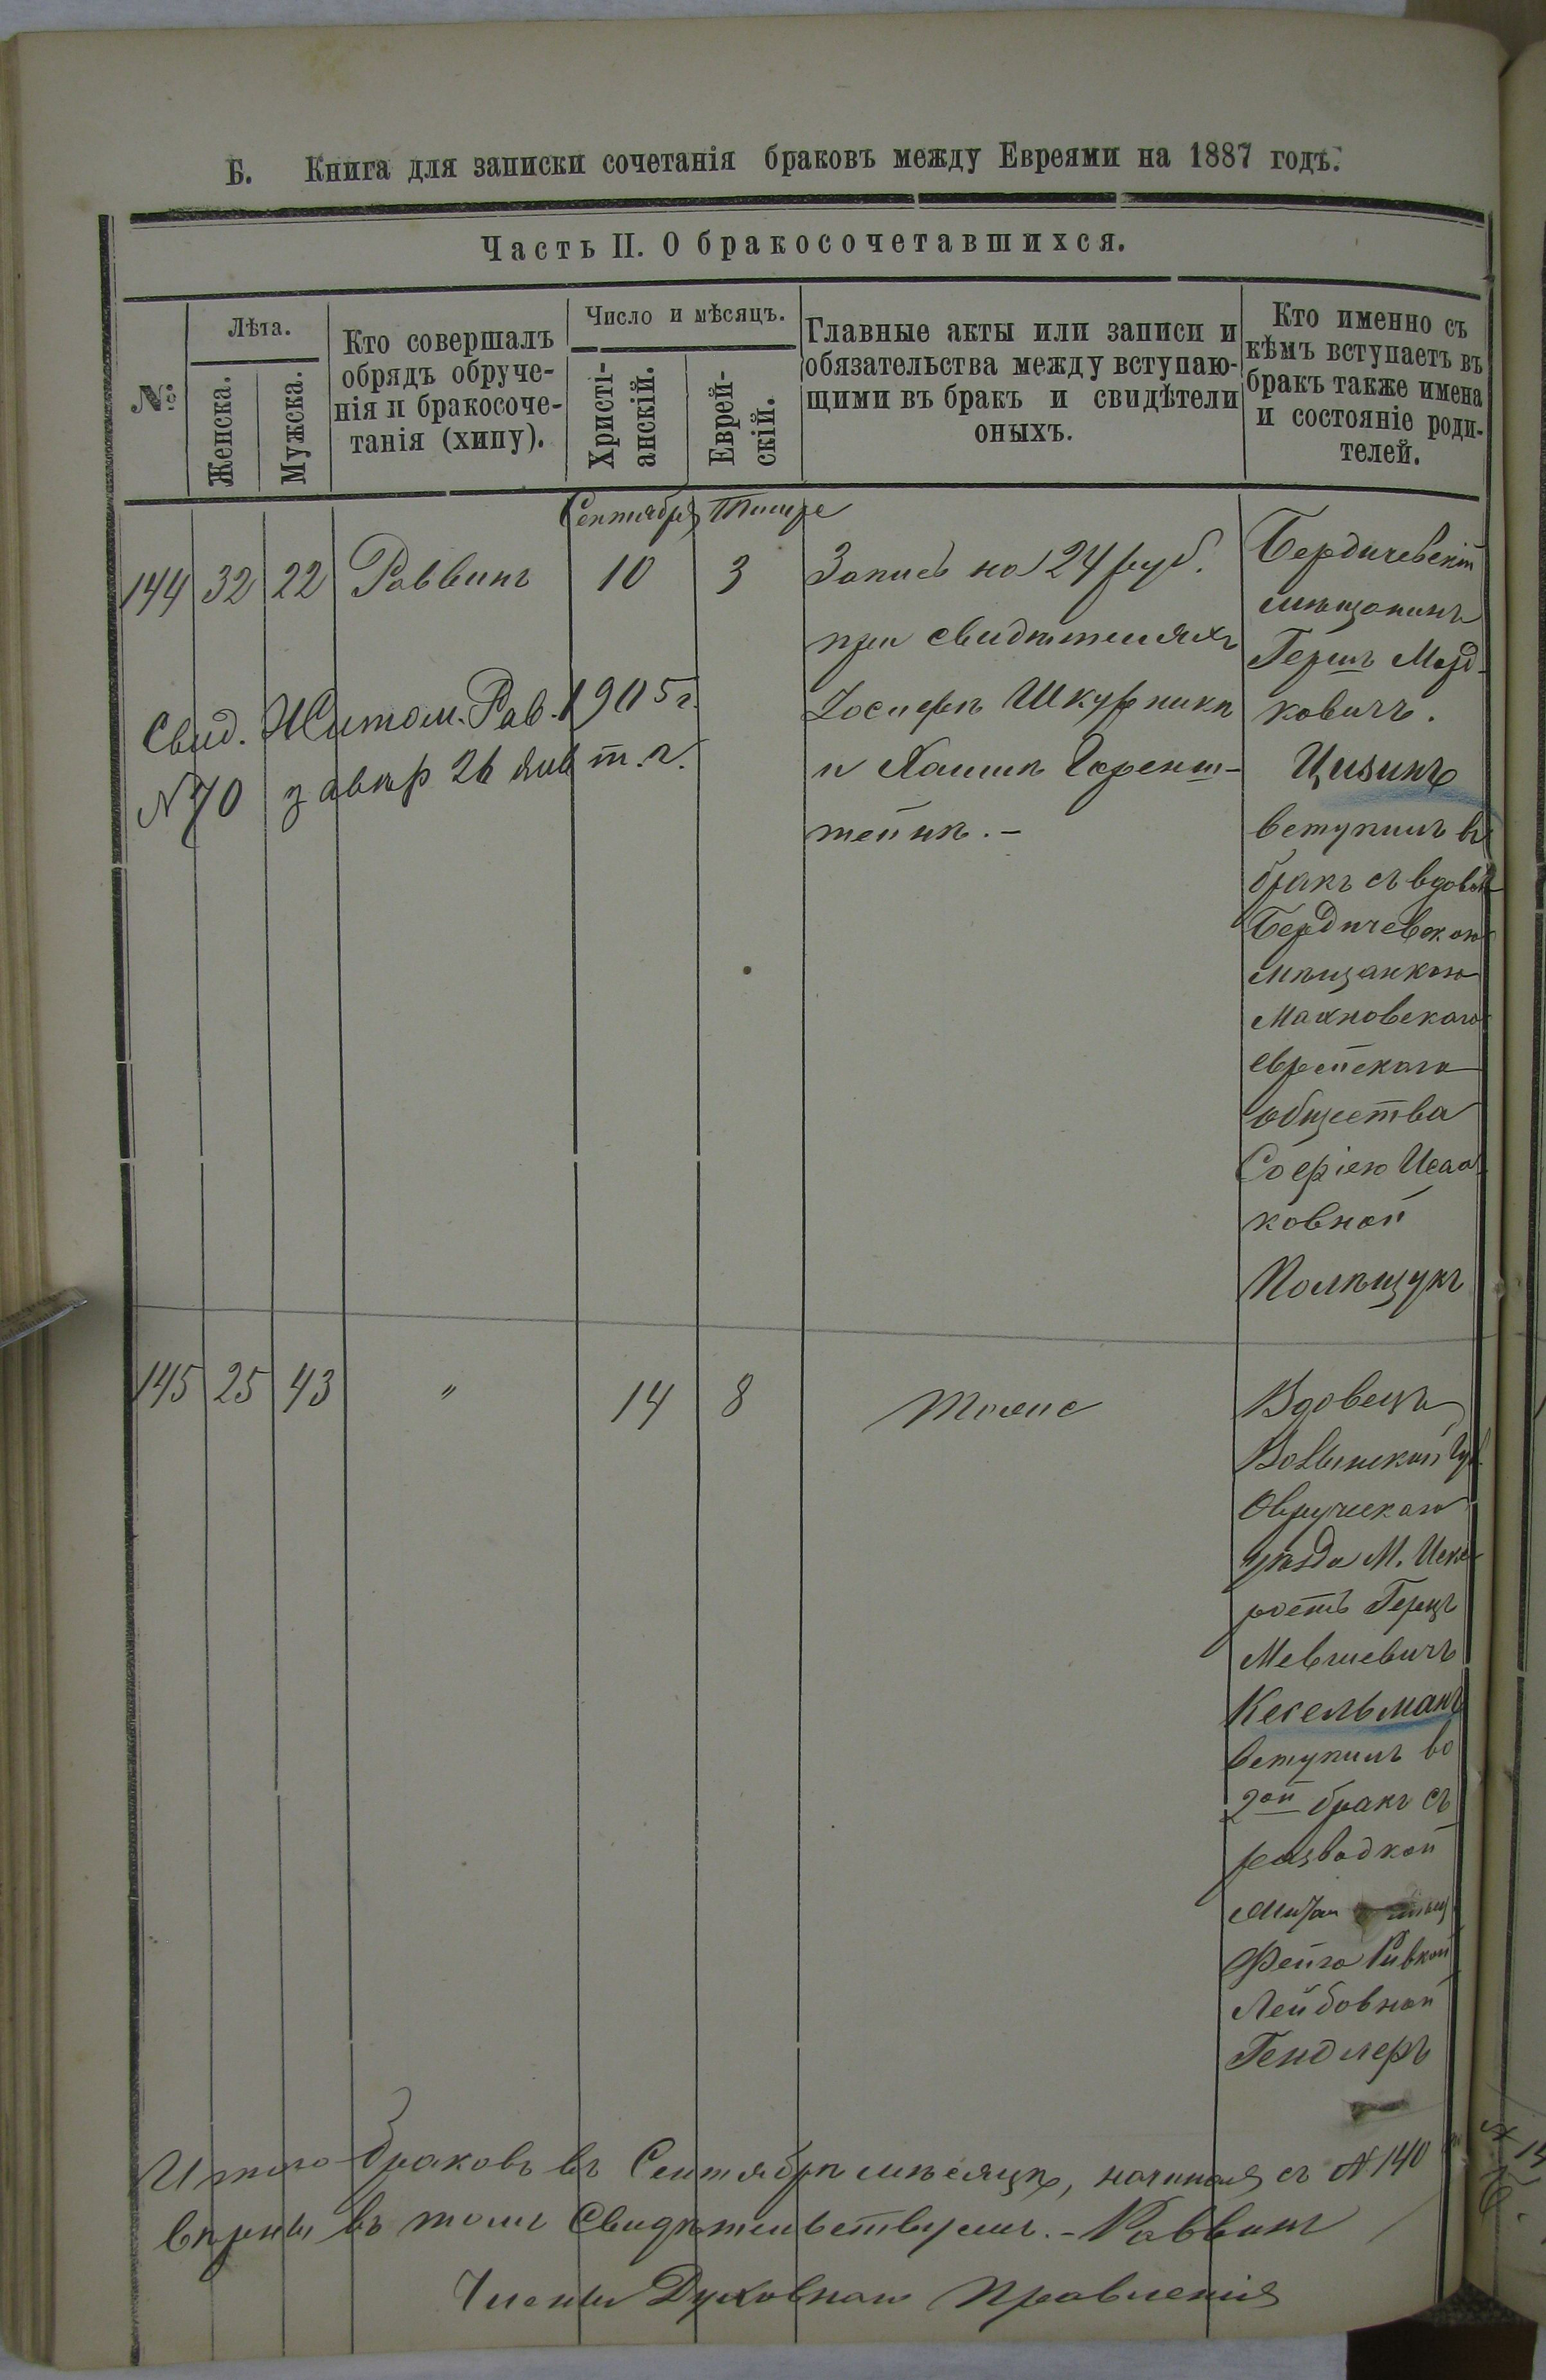 Б. Книга для записки сочетанія браковъ между Евреями на 1887 годъ.
Часть II. О бракосочетавшихся.
№
Лѣта.
Женска.
Мужска.
Кто совершалъ
обрядъ обруче-
нія и бракосоче-
танія (хипу).
Число и мѣсяцъ.
Христі-
анскій.
Еврей-
скій.
Главные акты или записи и
обязательства между вступаю-
щими въ бракъ и свидѣтели
оныхъ.
Кто именно съ
кѣмъ вступаетъ въ
бракъ также имена
и состояніе роди-
телей.
Сентября Тишре
144 32 22 Раввинъ 10 3
Запись на 24 руб.
при свидѣтеляхъ
Іосифѣ Шкурникѣ
и Хаимѣ Горенш-
тейнѣ.-
Свид. Житом. Рав. 1905 г.
№ 70 завѣр 26 янв т. г.
Бердичевскій
мѣщанинъ
Гершъ Морд-
ковичъ.
Цизинъ
вступилъ въ
бракъ съ вдовой
Бердичевскою
мѣщанкою
Махновскаго
еврейскаго
общества
Софіею Исаа-
ковной
Полѣщукъ
145 25 43 " 14 8 Тоже
Вдовецъ
Волынской Губ.
Овручскаго
уѣзда М. Иско-
рость Герцъ
Мевшевичъ
Кесельманъ
вступилъ во
2ой бракъ съ
разводкой
Фейга Ривкой
Лейбовной
Гендлеръ
Итого браковъ въ Сентябрѣ мѣсяцѣ, начиная съ № 140
вѣрны въ томъ Свидѣтельствуемъ.- Раввинъ
Члены Духовнаго Правленія